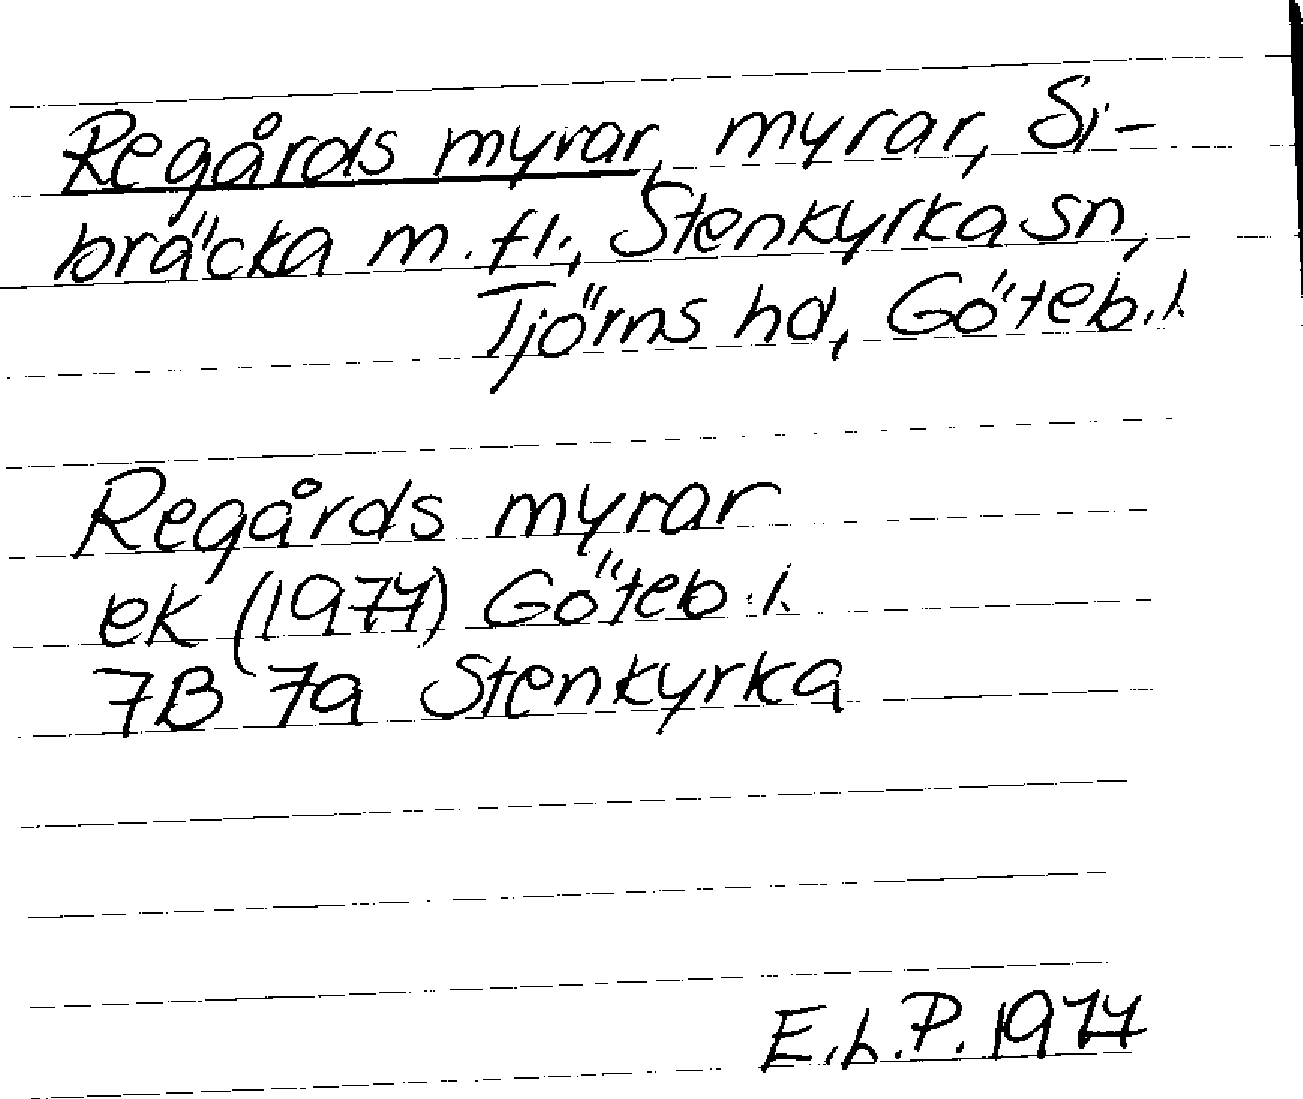 Regårds myrar, myrar, Si-
bräcka m.fl., Stenkyrka sn,
Tjörns hd, Göteb.l.
Regårds myrar
ek (1977) Göteb.l.
7B 7a Stenkyrka
E.b.P. 1977